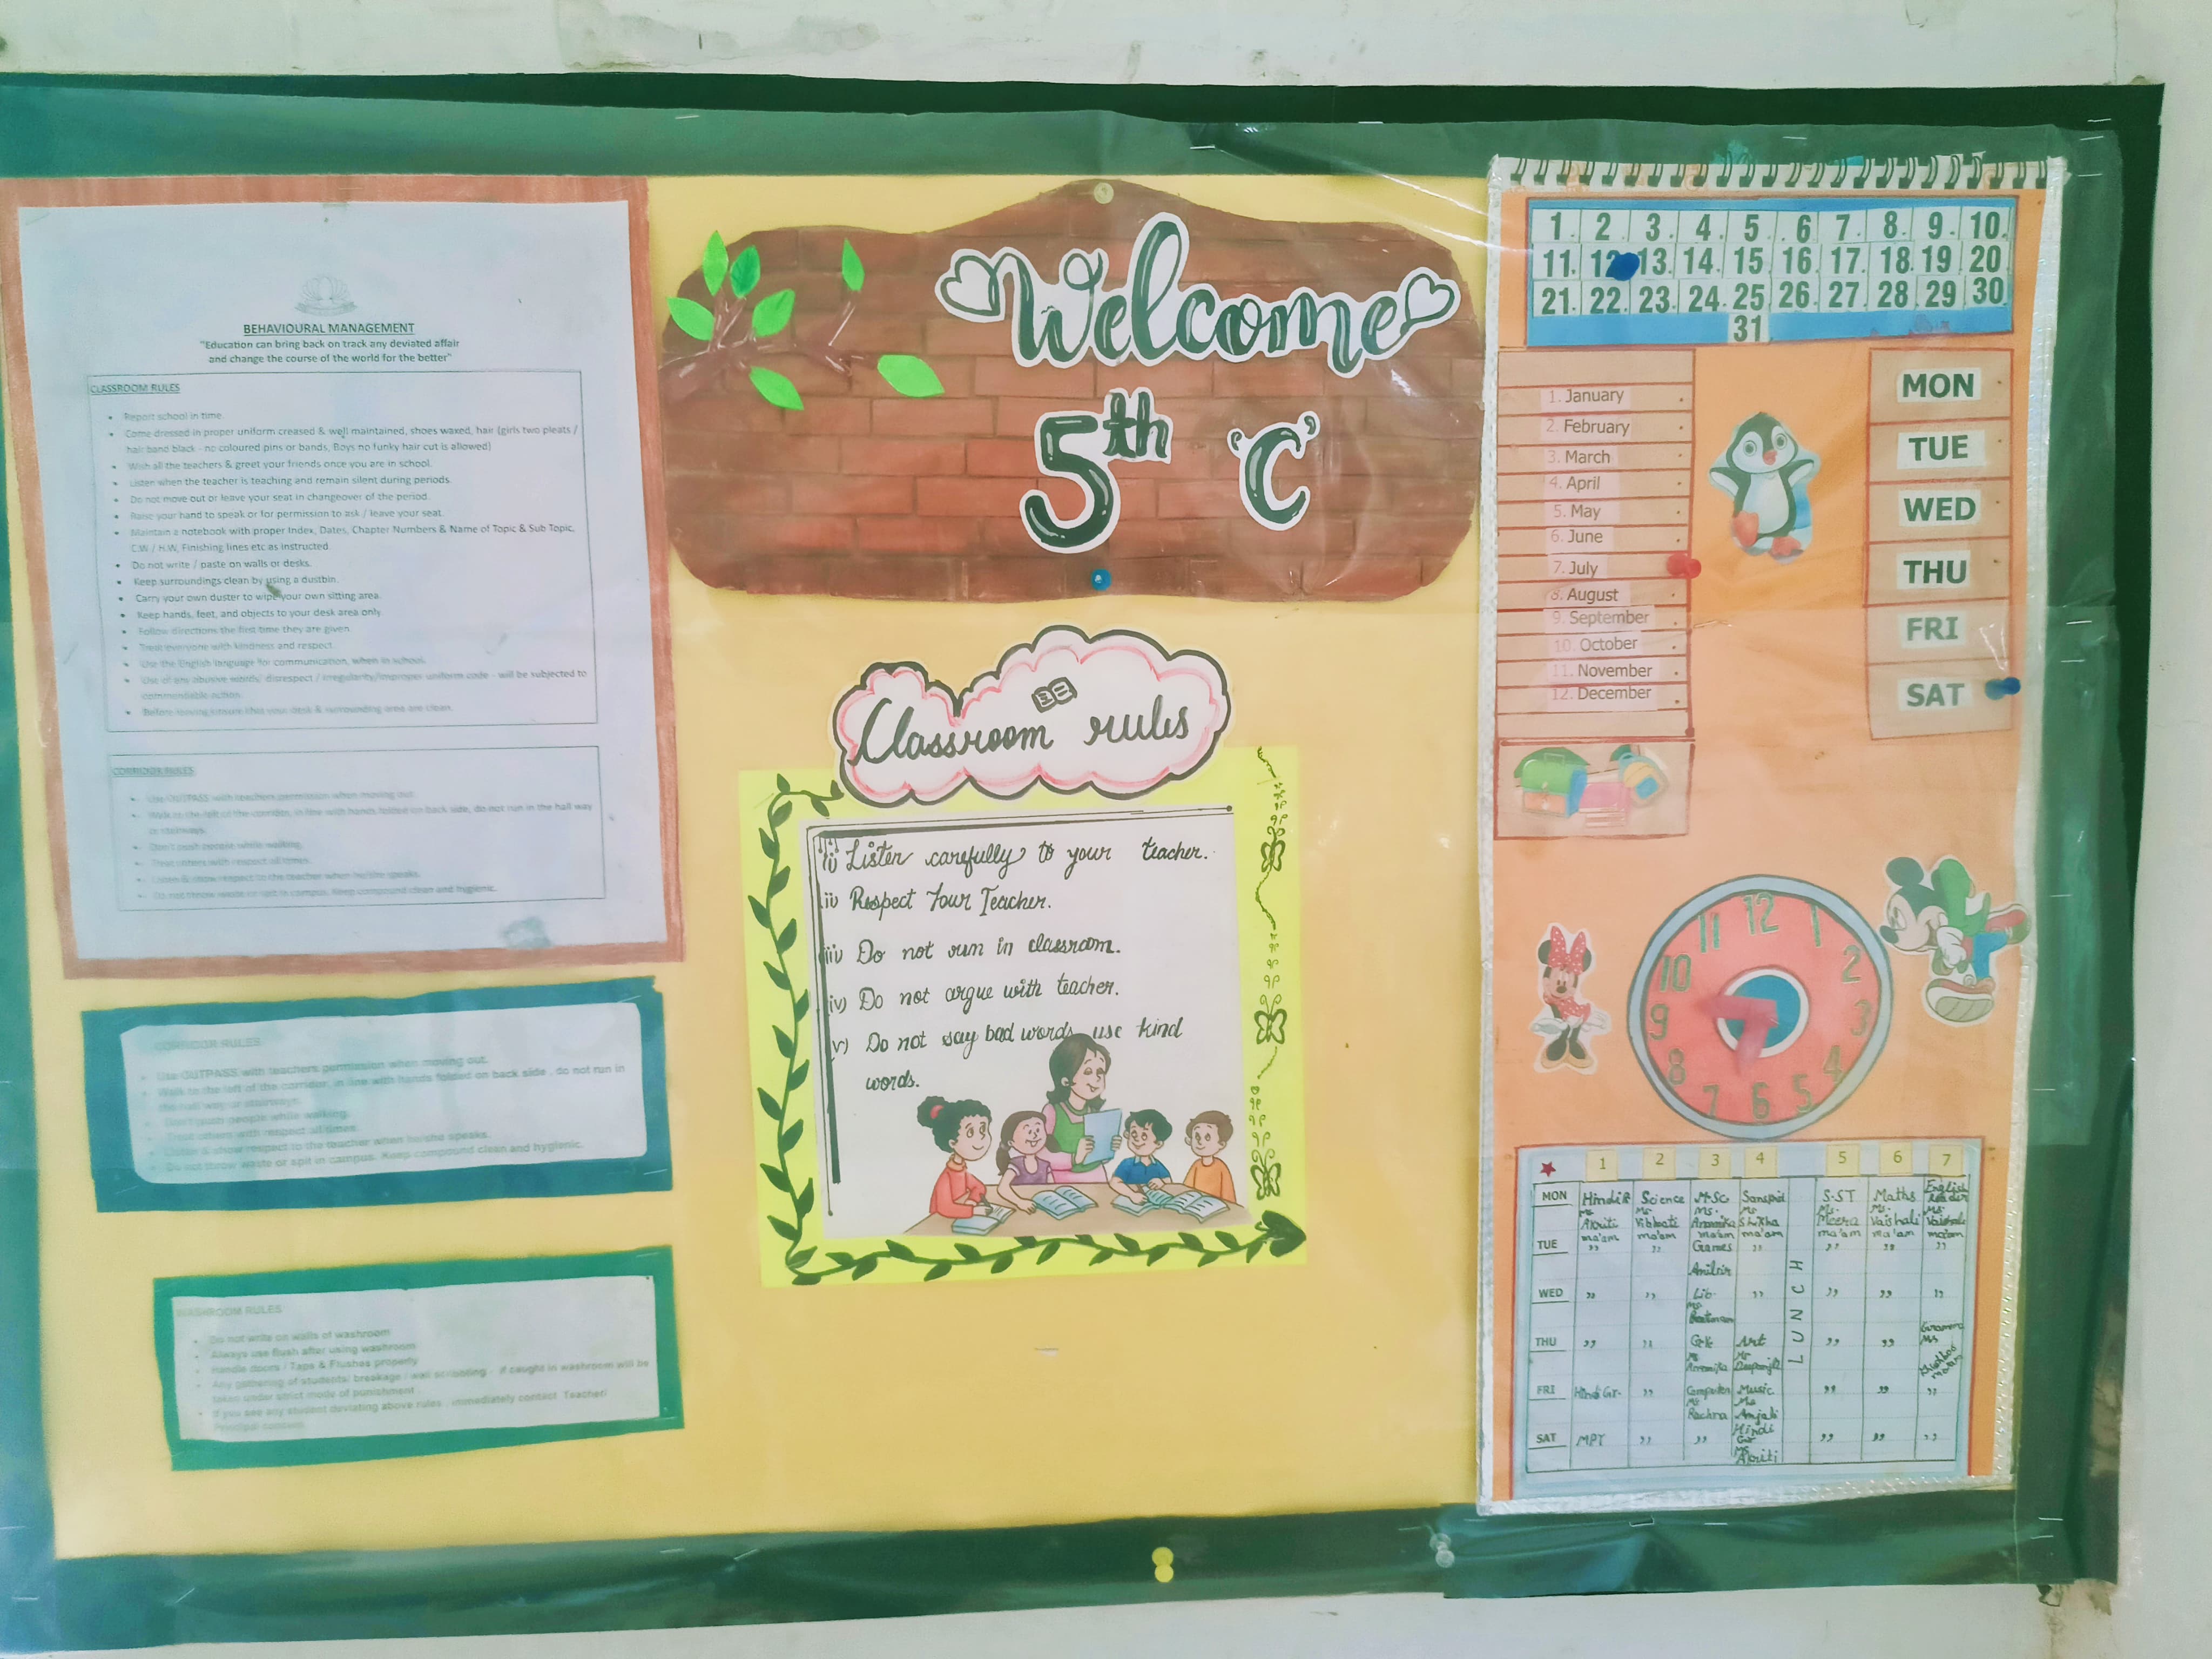 BEHAVIOURAL MANAGEMENT
"Education can bring back on track any deviated affair
and change the course of the world for the better"
CLASSROOM RULES
• Report school in time.
• Come dressed in proper uniform creased & well maintained, shoes waxed, hair (girls two pleats /
hair band black - no coloured pins or bands, Boys no funky hair cut is allowed)
• Wish all the teachers & greet your friends once you are in school.
• Listen when the teacher is teaching and remain silent during periods.
• Do not move out or leave your seat in changeover of the period.
• Raise your hand to speak or for permission to ask / leave your seat.
• Maintain a notebook with proper Index, Dates, Chapter Numbers & Name of Topic & Sub Topic,
C.W / H.W, Finishing lines etc as instructed.
• Do not write / paste on walls or desks.
• Keep surroundings clean by using a dustbin.
• Carry your own duster to wipe your own sitting area.
• Keep hands, feet, and objects to your desk area only
• Follow directions the first time they are given.
• Treat everyone with kindness and respect.
• Use the English language for communication, when in school.
• Use of any abusive words/ disrespect / irregularity/improper uniform code - will be subjected to
commendable action.
• Before leaving ensure that your desk & surrounding area are clean.
CORRIDOR RULES
• Use OUTPASS with teachers permission when moving out.
• Walk to the left of the corridor, in line with hands folded on back side, do not run in the hall way
or stairways.
• Don't push people while walking.
• Treat others with respect all times.
• Listen & show respect to the teacher when he/she speaks.
• Do not throw waste or spit in campus. Keep compound clean and hygienic.
CORRIDOR RULES
• Use OUTPASS with teachers permission when moving out.
• Walk to the left of the corridor, in line with hands folded on back side , do not run in
the hall way or stairways.
• Don't push people while walking.
• Treat others with respect all times.
• Listen & show respect to the teacher when he/she speaks.
• Do not throw waste or spit in campus. Keep compound clean and hygienic.
WASHROOM RULES
• Do not write on walls of washroom
• Always use flush after using washroom
• Handle doors / Taps & Flushes properly
• Any gathering of students/ breakage / wall scribbling - if caught in washroom will be
taken under strict mode of punishment .
• If you see any student deviating above rules , immediately contact Teacher/
Principal
Welcome
5th 'C'
Classroom rules
i) Listen carefully to your teacher.
ii) Respect Your Teacher.
iii) Do not run in classroom.
iv) Do not argue with teacher.
v) Do not say bad words use kind
words.
1. 2. 3. 4. 5. 6. 7. 8. 9. 10.
11. 12 13. 14. 15. 16. 17. 18. 19 20
21. 22. 23. 24. 25 26. 27. 28. 29. 30
31
1. January
2. February
3. March
4. April
5. May
6. June
7. July
8. August
9. September
10. October
11. November
12. December
MON
TUE
WED
THU
FRI
SAT
12 1 2 3 4 5 6 7 8 9 10 11
1 2 3 4 5 6 7
MON Hindi Science M.Sc S.ST Maths English
Ms. Ms. Ms. Ms. Ms. Ms.
Akriti Vibhooti Anamika Shikha Meera Vaishali Vaishali
ma'am ma'am ma'am ma'am ma'am ma'am ma'am
TUE " " Games " " " "
Anil sir
WED " " Lib. " LUNCH " " "
Ms.
THU " " G.K Art " "
Ms Ms Ms
Anamika
FRI Hindi Gr. " Computer Music " " "
Ms Ms
Rachna Anjali
SAT MPT " " Hindi " " "
Gr
Ms
Akriti